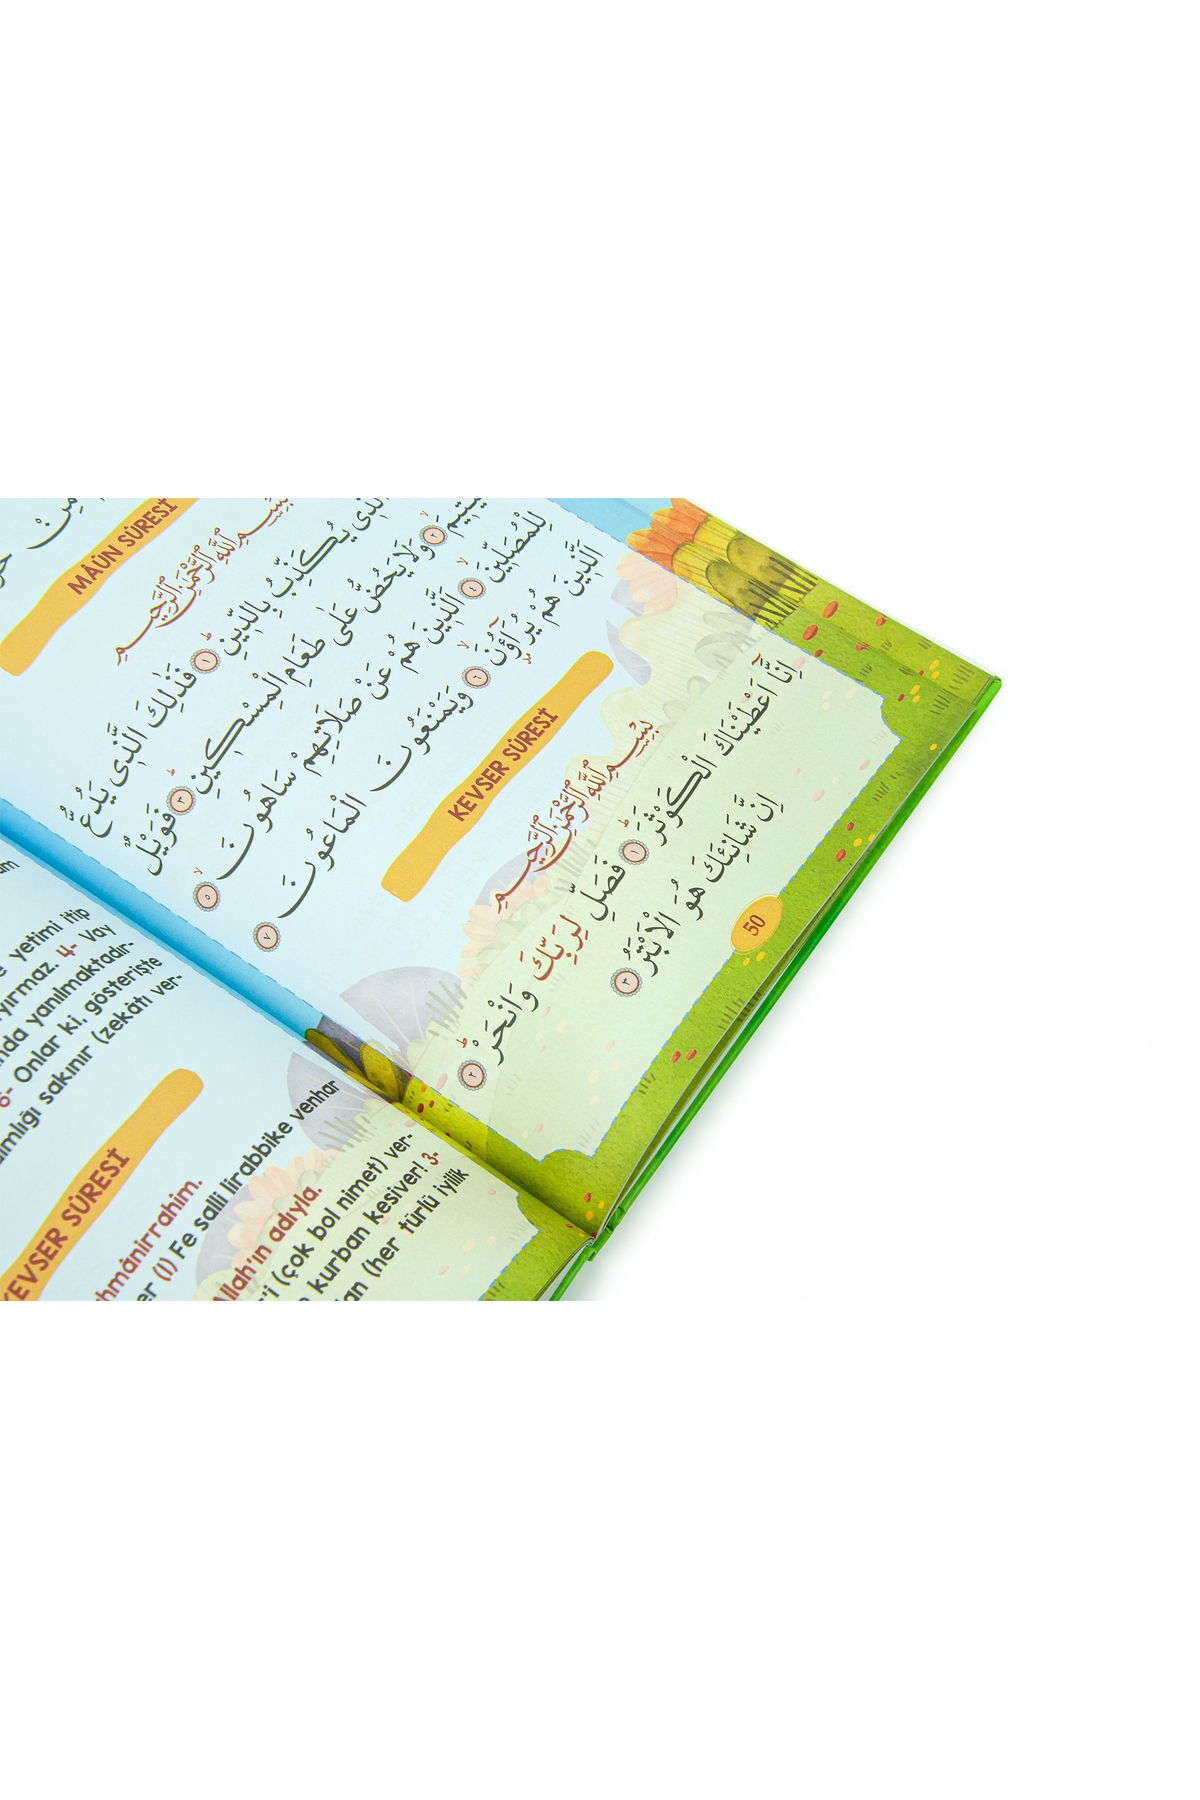 مِنْ
MÂÛN SÛRESİ
بِسْمِ اللّٰهِ الرَّحْمٰنِ الرَّحِيمِ
الَّذِى يُكَذِّبُ بِالدِّينِ ١ فَذٰلِكَ الَّذِى يَدُعُّ
٢ وَلَا يَحُضُّ عَلٰى طَعَامِ الْمِسْكِينِ ٣ فَوَيْلٌ
لِلْمُصَلِّينَ ٤ اَلَّذِينَ هُمْ عَنْ صَلَاتِهِمْ سَاهُونَ ٥
اَلَّذِينَ هُمْ يُرَٓاؤُنَ ٦ وَيَمْنَعُونَ الْمَاعُونَ ٧
KEVSER SÛRESİ
بِسْمِ اللّٰهِ الرَّحْمٰنِ الرَّحِيمِ
اِنَّٓا اَعْطَيْنَاكَ الْكَوْثَرَ ١ فَصَلِّ لِرَبِّكَ وَانْحَرْ ٢
اِنَّ شَانِئَكَ هُوَ الْاَبْتَرُ ٣
50
yetimi itip
yırmaz. 4- Vay
yanılmaktadır-
6- Onlar ki, gösterişte
sakınır (zekâtı ver-
KEVSER SÛRESİ
(1) Fe salli lirabbike venhar
Allah'ın adıyla.
(çok bol nimet) ver-
kurban kesiver! 3-
(her türlü iyilik